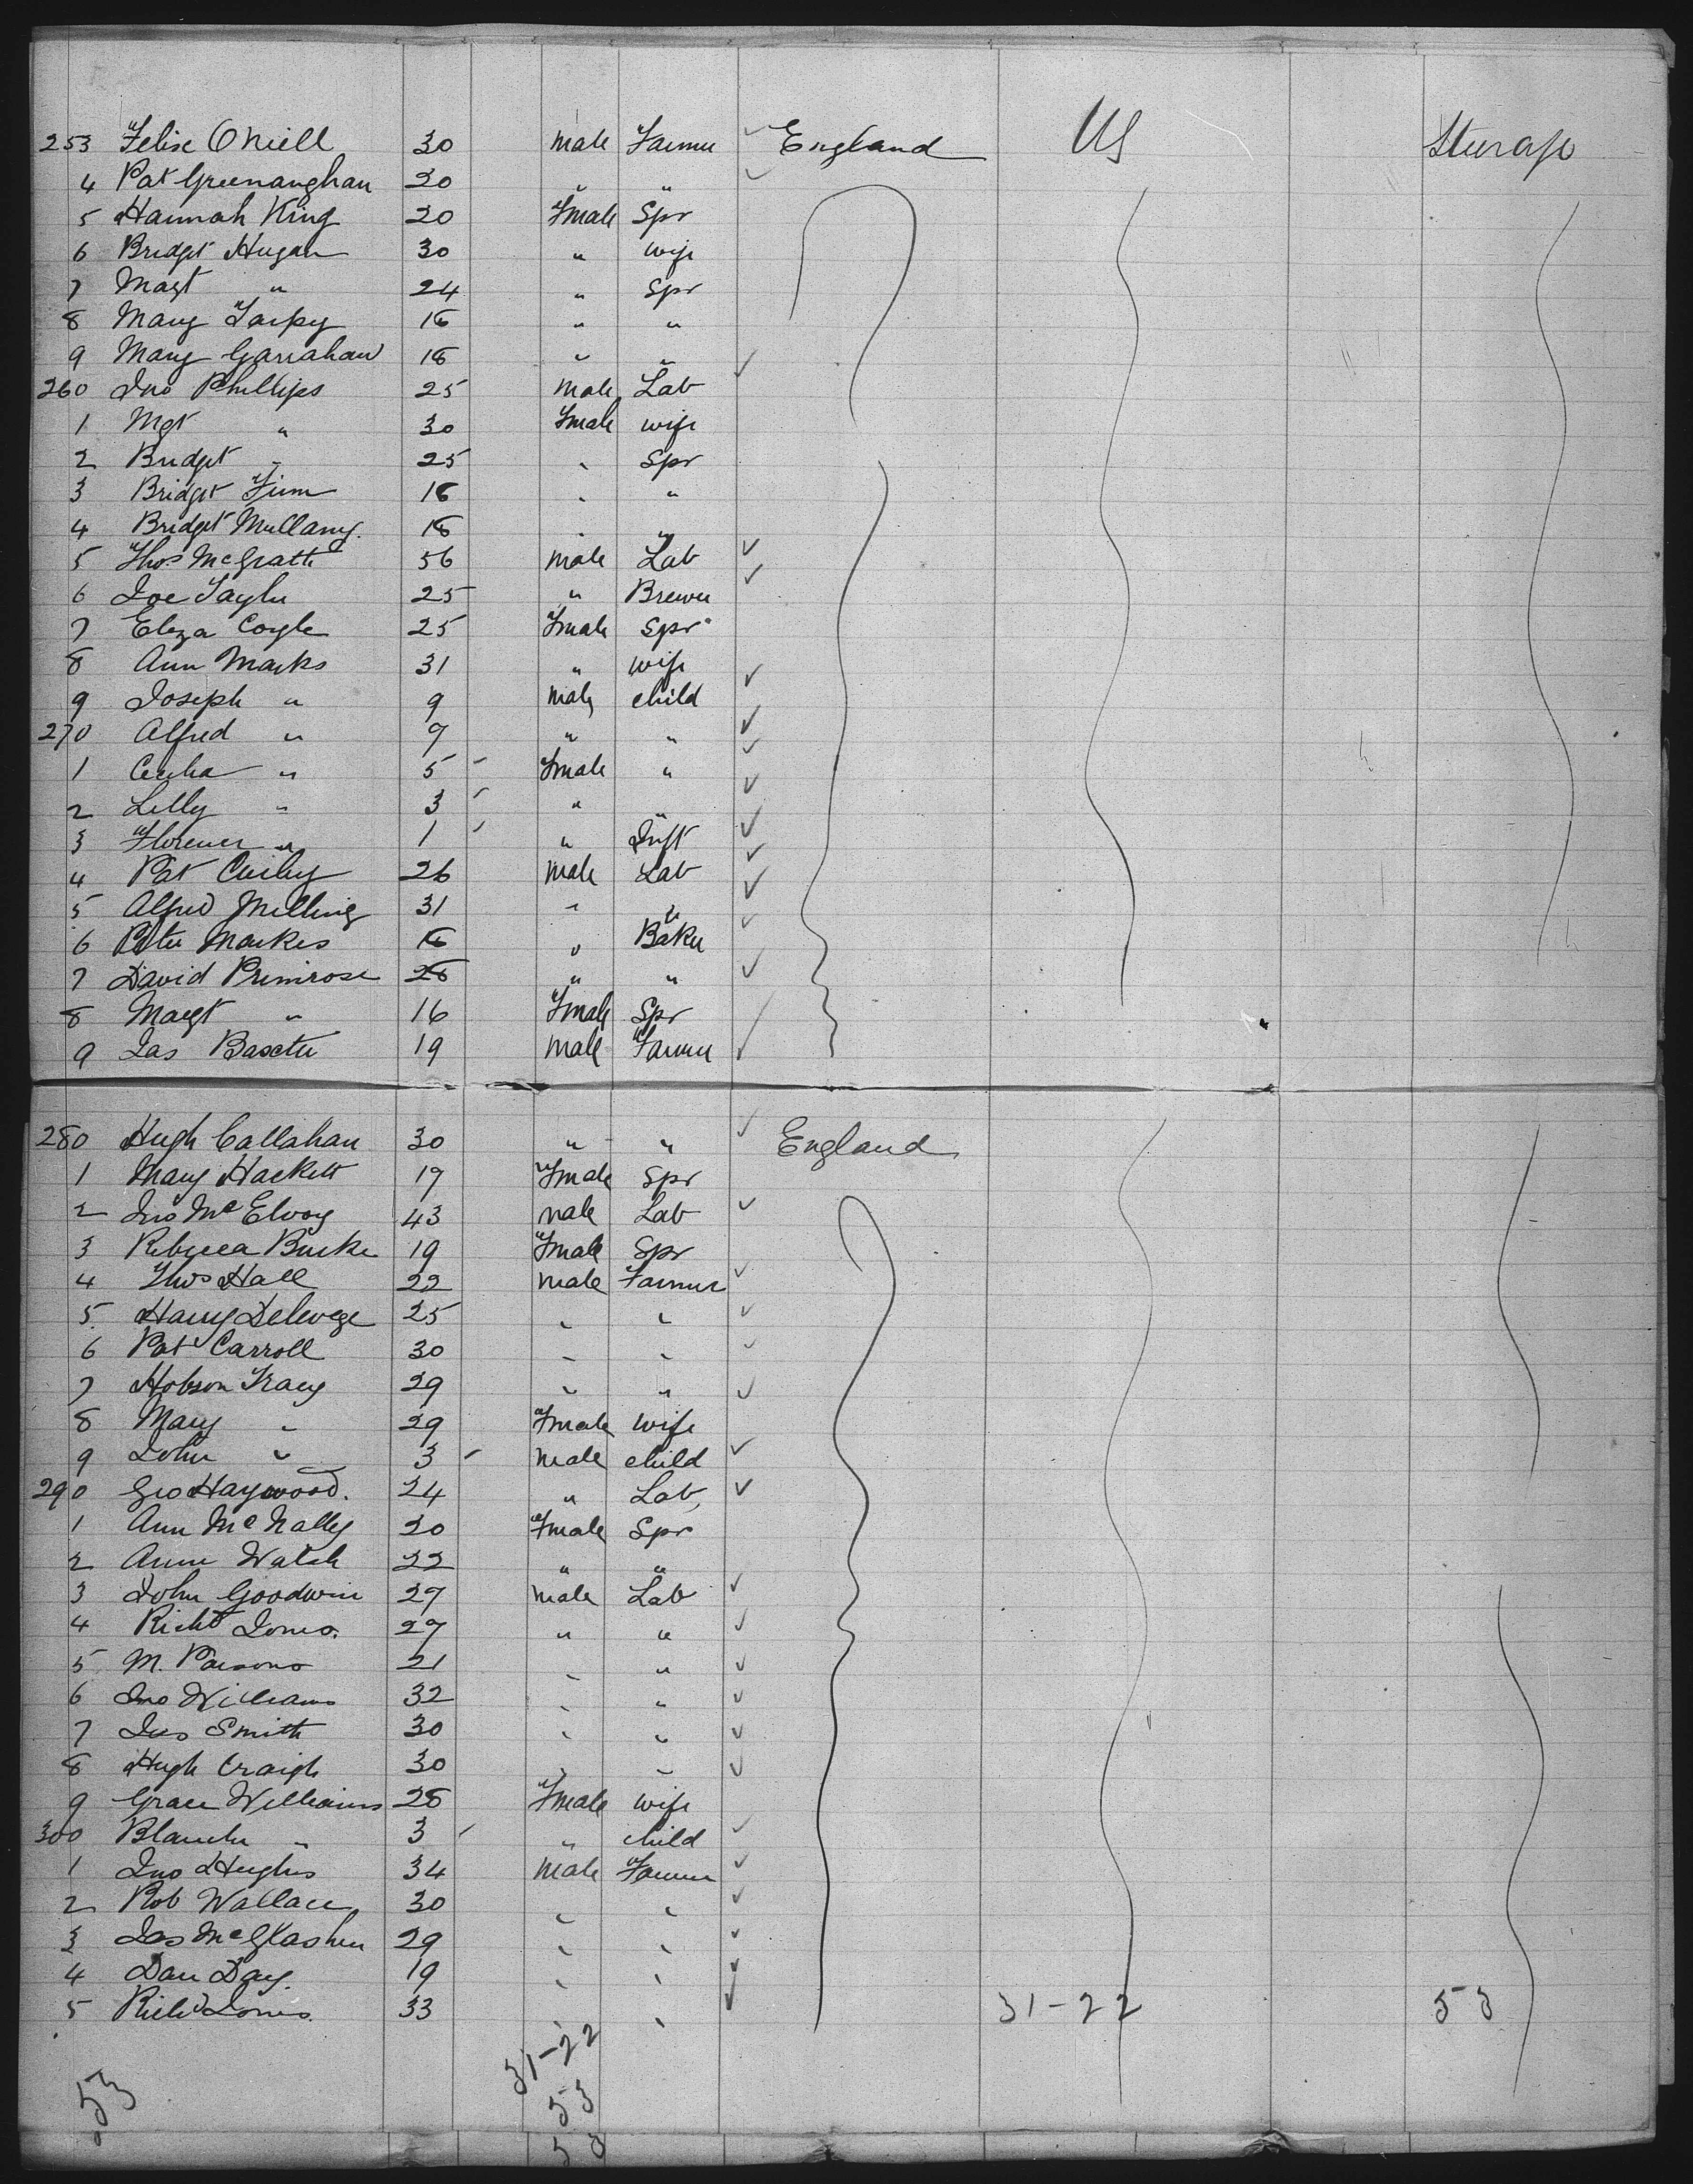 253 Felix O Niell 30 male Farmer England US Steerage
4 Pat Greenanghan 20 " "
5 Hannah King 20 Fmale Spr
6 Bridget Hugan 30 " wife
7 Magt " 24 " Spr
8 Mary Tarpy 16 " "
9 Mary Garrahan 18 " "
260 Jno Phillips 25 male Lab
1 Mgt " 30 Fmale wife
2 Bridget " 25 " Spr
3 Bridget Finn 16 " "
4 Bridget Mullany. 18 " "
5 Thos McGrath 56 male Lab
6 Joe Taylor 25 " Brewer
7 Eliza Coyle 25 Fmale Spr
8 Ann Marks 31 " wife
9 Joseph " 9 male child
270 Alfred " 7 " "
1 Cecilia " 5 Fmale "
2 Lilly " 3 " "
3 Florence " 1 " Inft
4 Pat Curley 26 male Lab
5 Alfred Milling 31 " "
6 Peter Markes 16 " Baker
7 David Primrose 28 " "
8 Margt " 16 Fmale Spr
9 Jas Baxter 19 male Farmer
280 Hugh Callahan 30 " " England
1 Mary Hackett 17 Fmale Spr
2 Jno McElvoy 43 male Lab
3 Rebecca Burke 19 Fmale Spr
4 Thos Hall 22 male Farmer
5 Harry Delevege 25 " "
6 Pat Carroll 30 " "
7 Hobson Tracy 29 " "
8 Mary " 29 Fmale wife
9 John " 3 male child
290 Geo Haywood. 24 " Lab
1 Ann McNally 20 Fmale Spr
2 Annie Walsh 22 " "
3 John Goodwin 27 male Lab
4 Richd Jones. 27 " "
5 M. Parsons 21 " "
6 Jno Williams 32 " "
7 Jas Smith 30 " "
8 Hugh Craigh 30 " "
9 Grace Williams 28 Fmale wife
300 Blanche " 3 " child
1 Jno Hughes 34 male Farmer
2 Rob Wallace 30 " "
3 Jas McGlashen 29 " "
4 Dan Day. 19 " "
5 Richd Jones. 33 " " 31-22 53
31-22
53 53
53